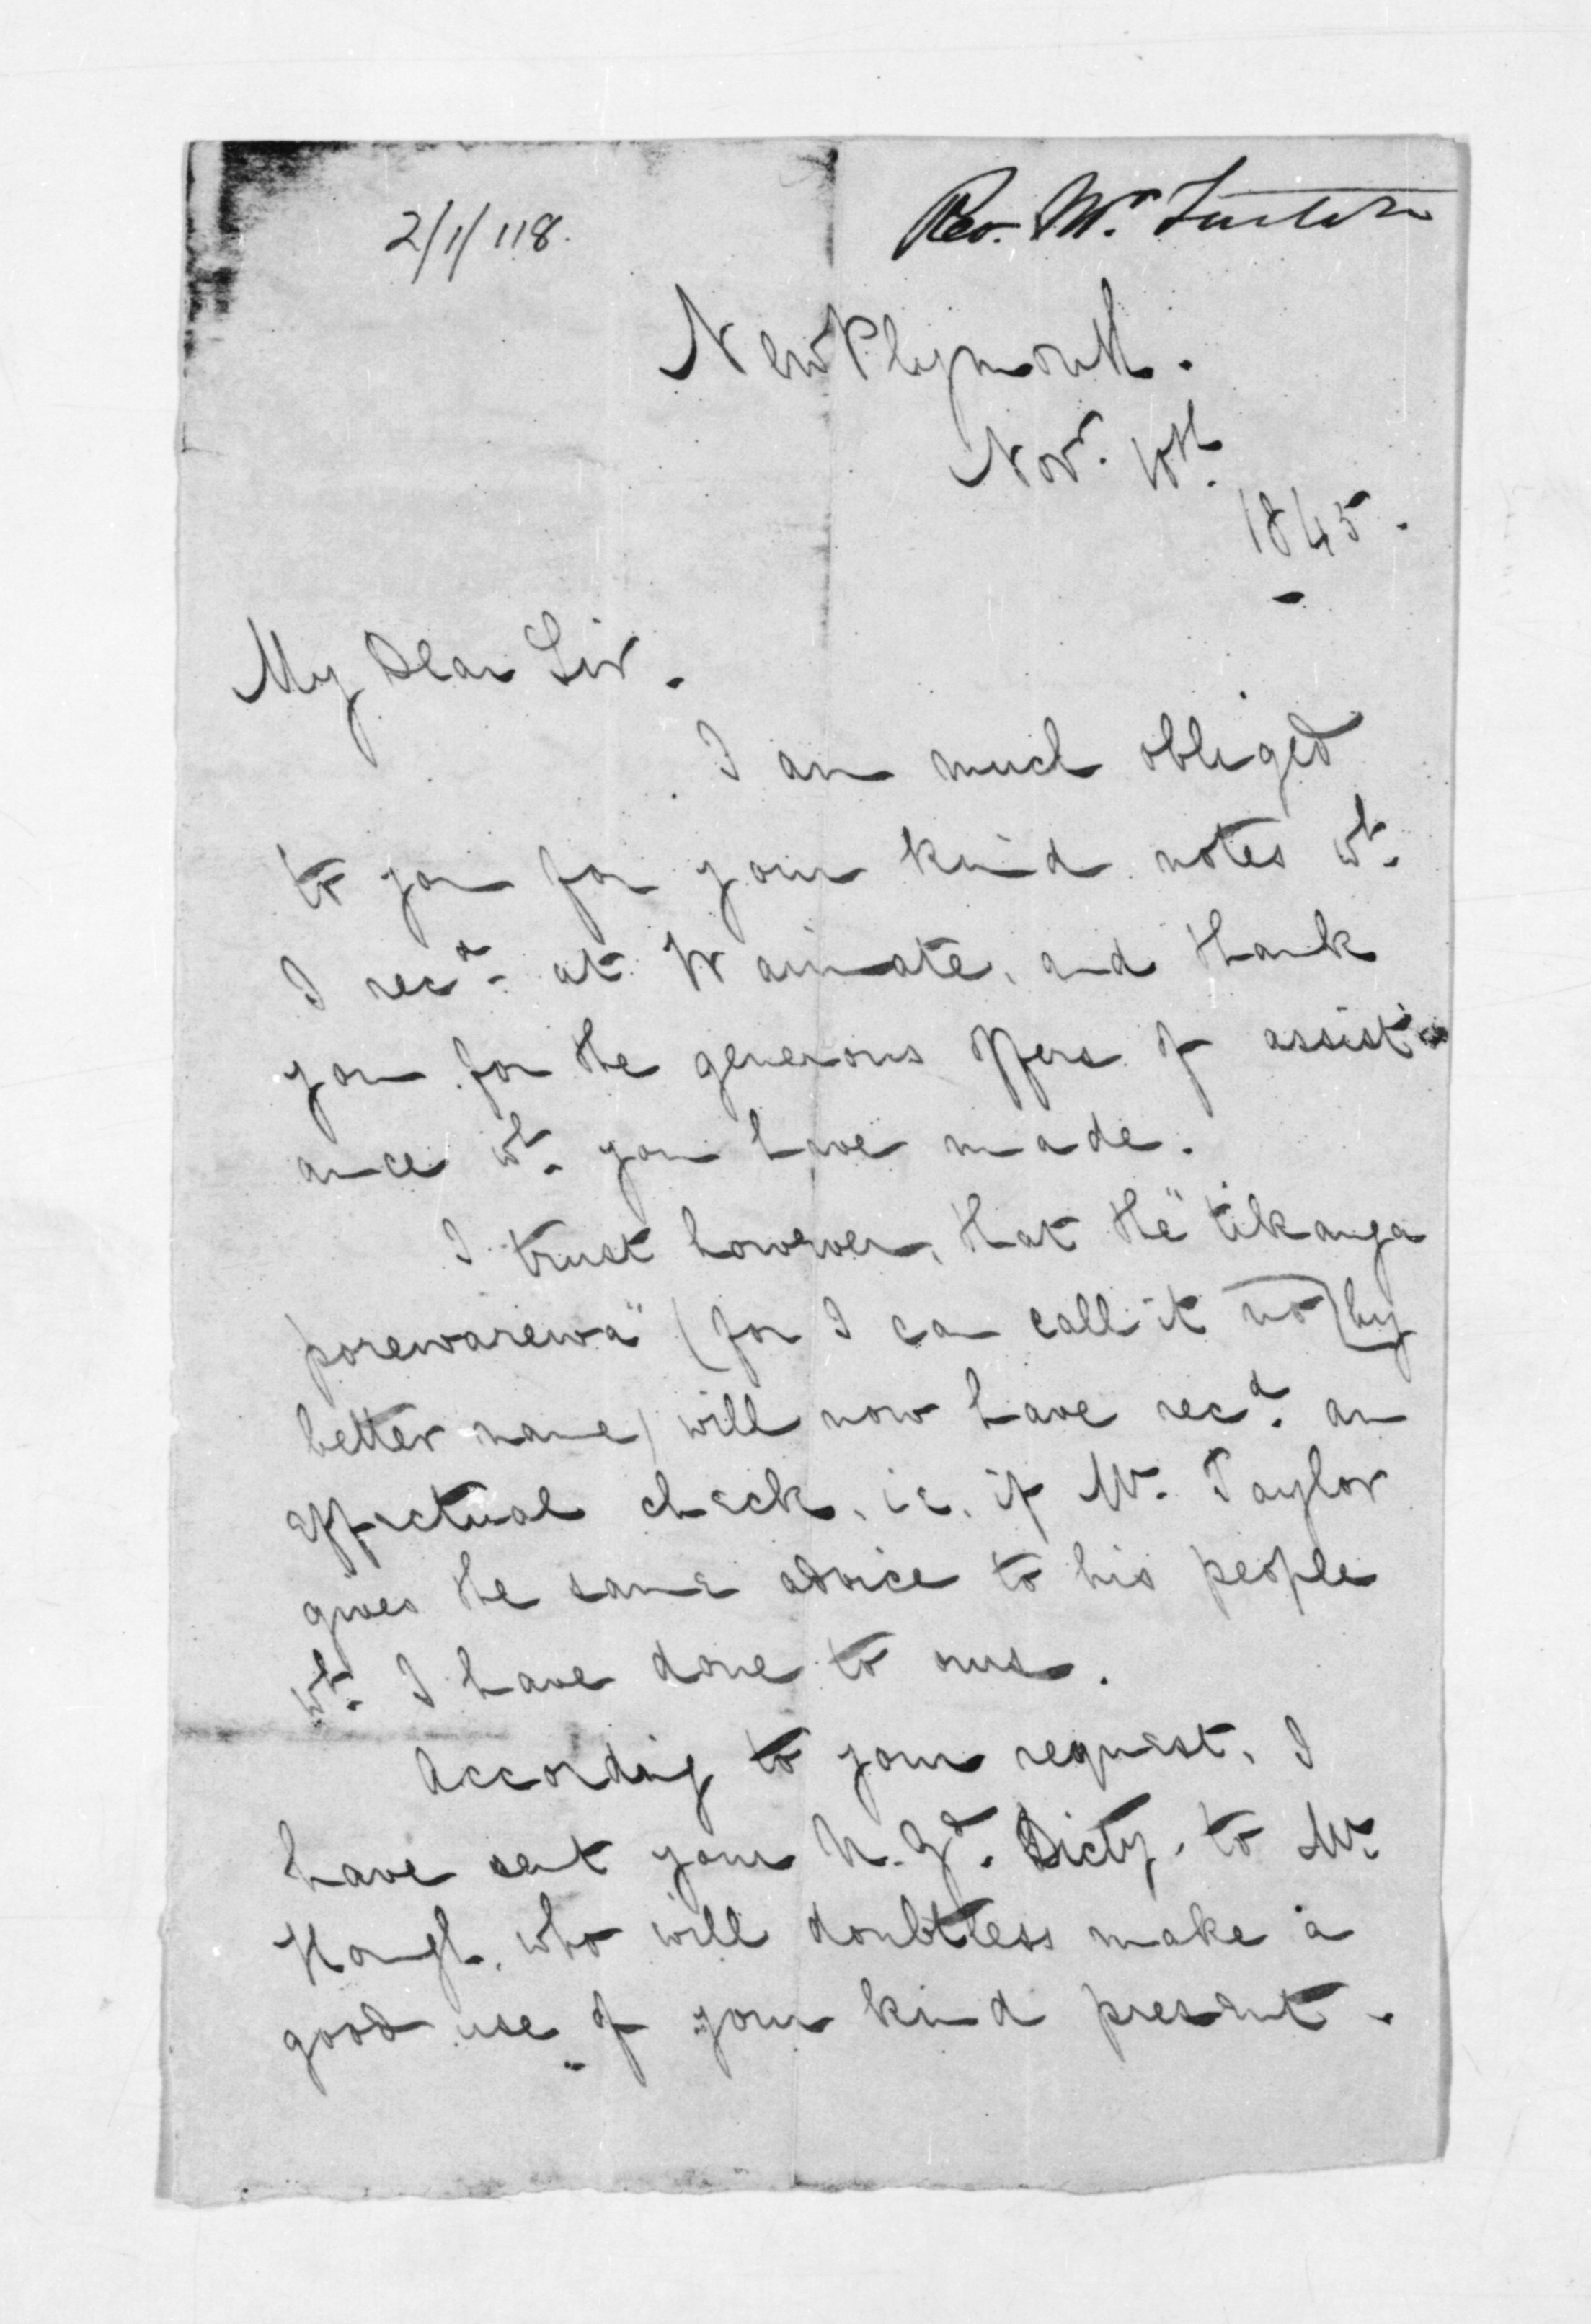 2/1/118.
Rev. Mr. Turton
New Plymouth.
Novr. 10th.
1845.
My Dear Sir.
I am much obliged
to you for your kind notes wh.
I recd. at Waimate, and thank
you for the generous offers of assist-
ance wh. you have made.
I trust however, that the "tikanga
porewarewa" (for I can call it no by
better name) will now have recd. an
effectual check, i.e. if Mr. Taylor
gives the same advice to his people
wh. I have done to ours.
According to your request, I
have sent your N.Zd. Dicty. to Mr.
Hough, who will doubtless make a
good use of your kind present.